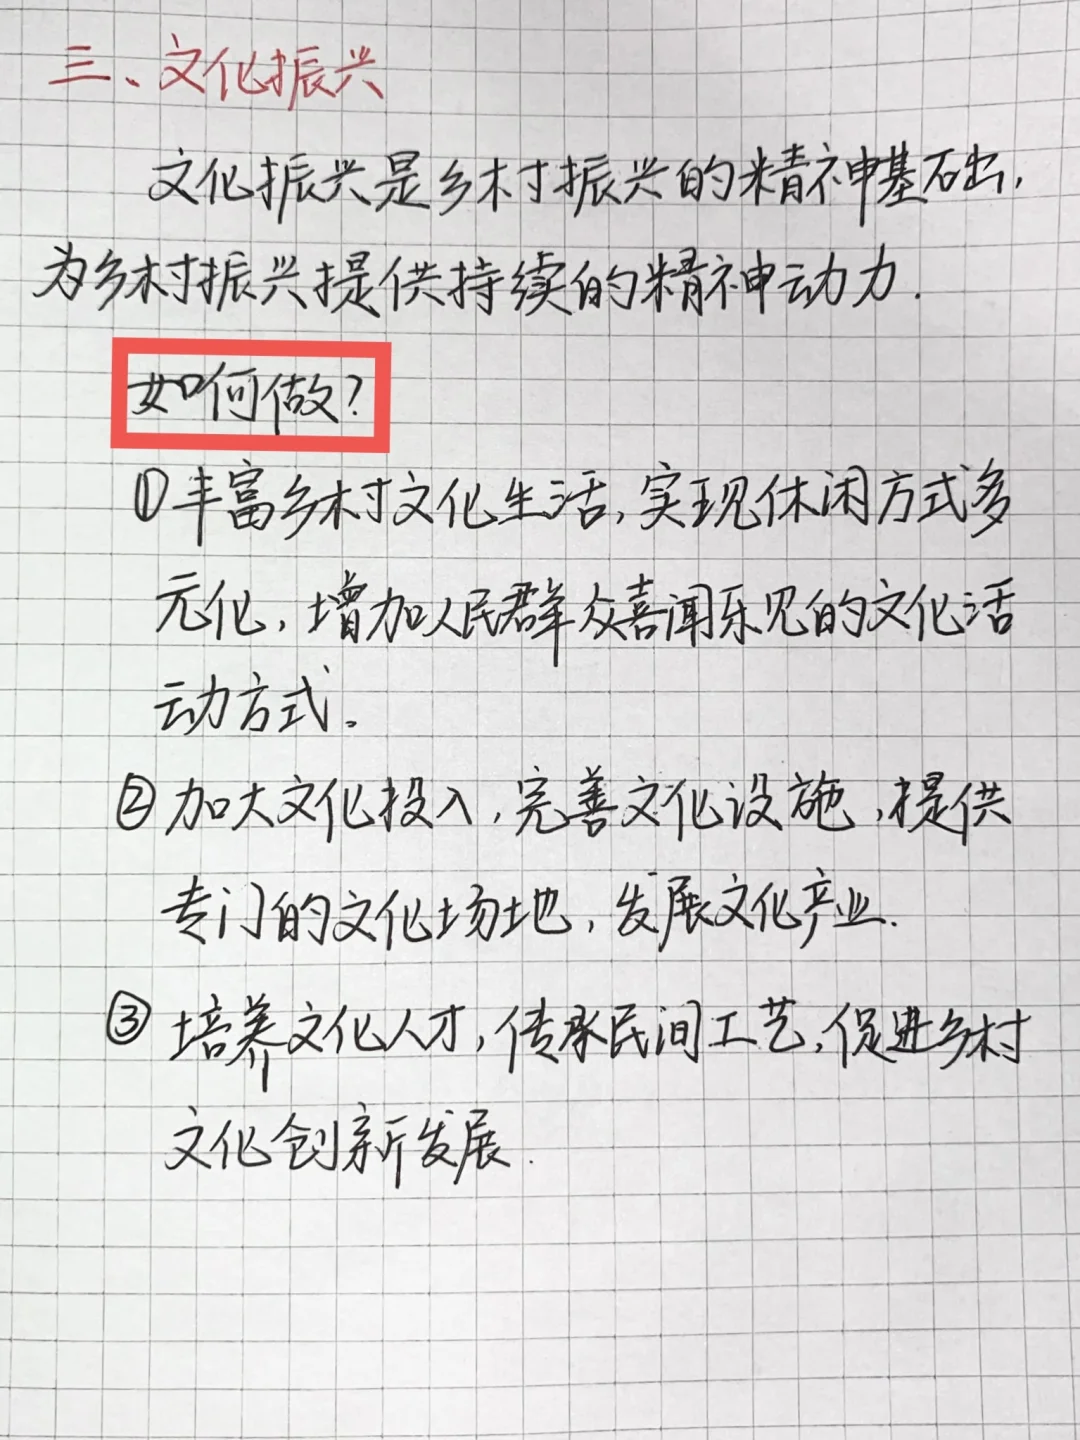 三、文化振兴
文化振兴是乡村振兴的精神基础,
为乡村振兴提供持续的精神动力.
如何做?
①丰富乡村文化生活,实现休闲方式多
元化,增加人民群众喜闻乐见的文化活
动方式。
②加大文化投入,完善文化设施,提供
专门的文化场地,发展文化产业.
③培养文化人才,传承民间工艺,促进乡村
文化创新发展.